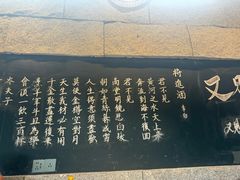 又
將進酒 李白
君不見
黄河之水天上来
奔流到海不復回
君不見
高堂明鏡悲白髮
朝如青絲暮成雪
人生得意須盡歡
莫使金樽空對月
天生我材必有用
千金散盡還復來
烹羊宰牛且為樂
會須一飲三百杯
岑夫子